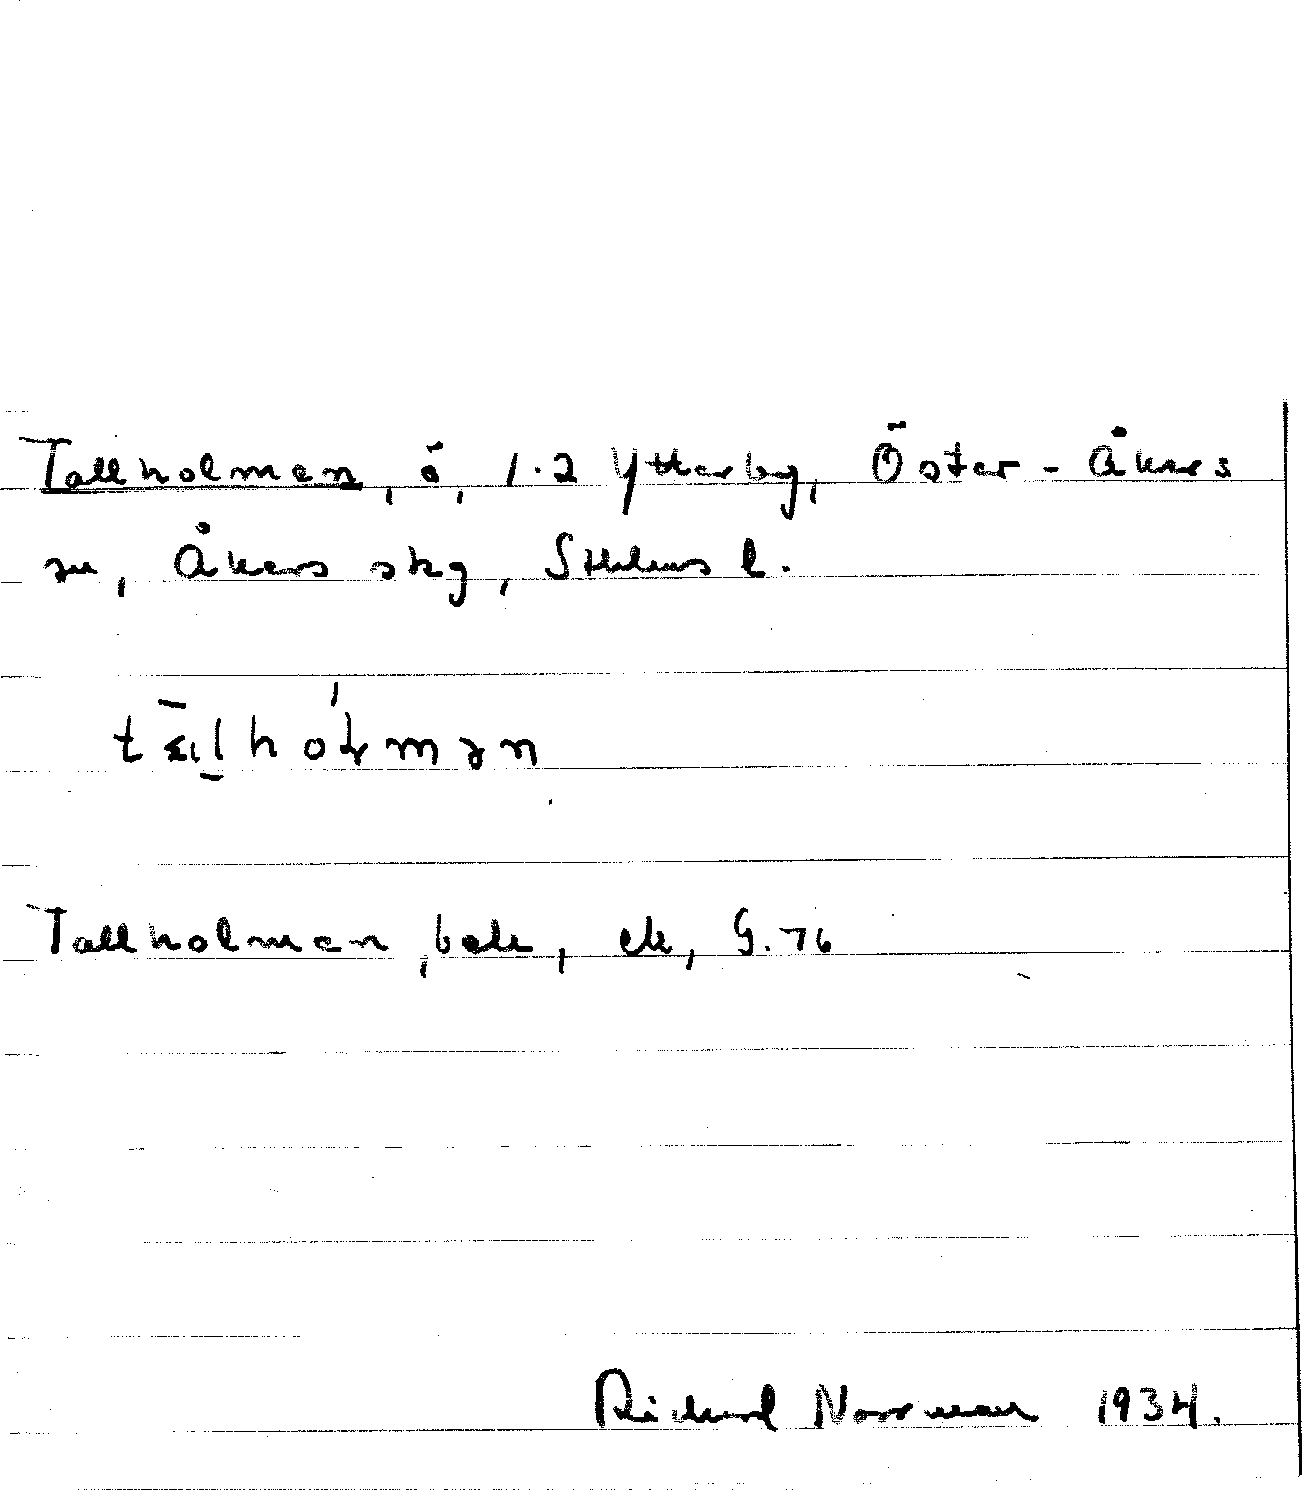 Tallholman, ö, 1.2 Ytterby, Öster-Åkers
sn, Åkers skg, Sthlms l.
Tallholman, bek, ek, G.76
Richard Norrman 1934.